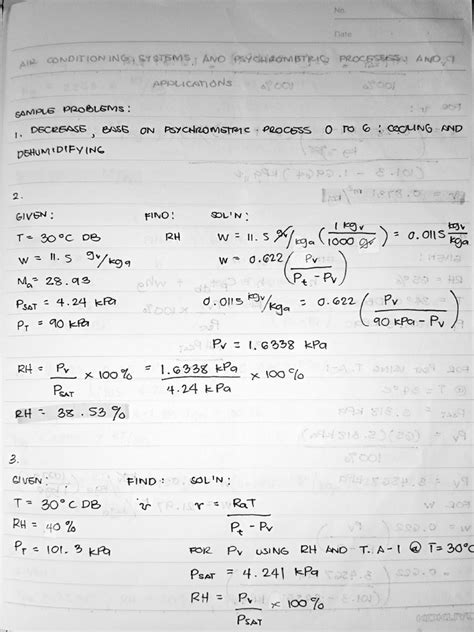 No.
Date
AIR CONDITIONING SYSTEMS AND PSYCHROMETRIC PROCESSES AND
APPLICATIONS
SAMPLE PROBLEMS:
1. DECREASE, BASE ON PSYCHROMETRIC PROCESS O TO G: COOLING AND
DEHUMIDIFYING
2.
GIVEN: FIND: SOL'N:
T = 30°C DB RH W = 11.5 gv/kga (1 kgv / 1000 gv) = 0.0115 kgv/kga
W = 11.5 gv/kga W = 0.622 (Pv / Pt - Pv)
Ma = 28.93
PSAT = 4.24 kPa 0.0115 kgv/kga = 0.622 (Pv / 90 kPa - Pv)
PT = 90 kPa
Pv = 1.6338 kPa
RH = Pv / PSAT × 100% = 1.6338 kPa / 4.24 kPa × 100%
RH = 38.53%
3.
GIVEN: FIND: SOL'N:
T = 30°C DB v v = RaT / Pt - Pv
RH = 40%
PT = 101.3 kPa FOR Pv USING RH AND T. A-1 @ T = 30°C
PSAT = 4.241 kPa
RH = Pv / PSAT × 100%